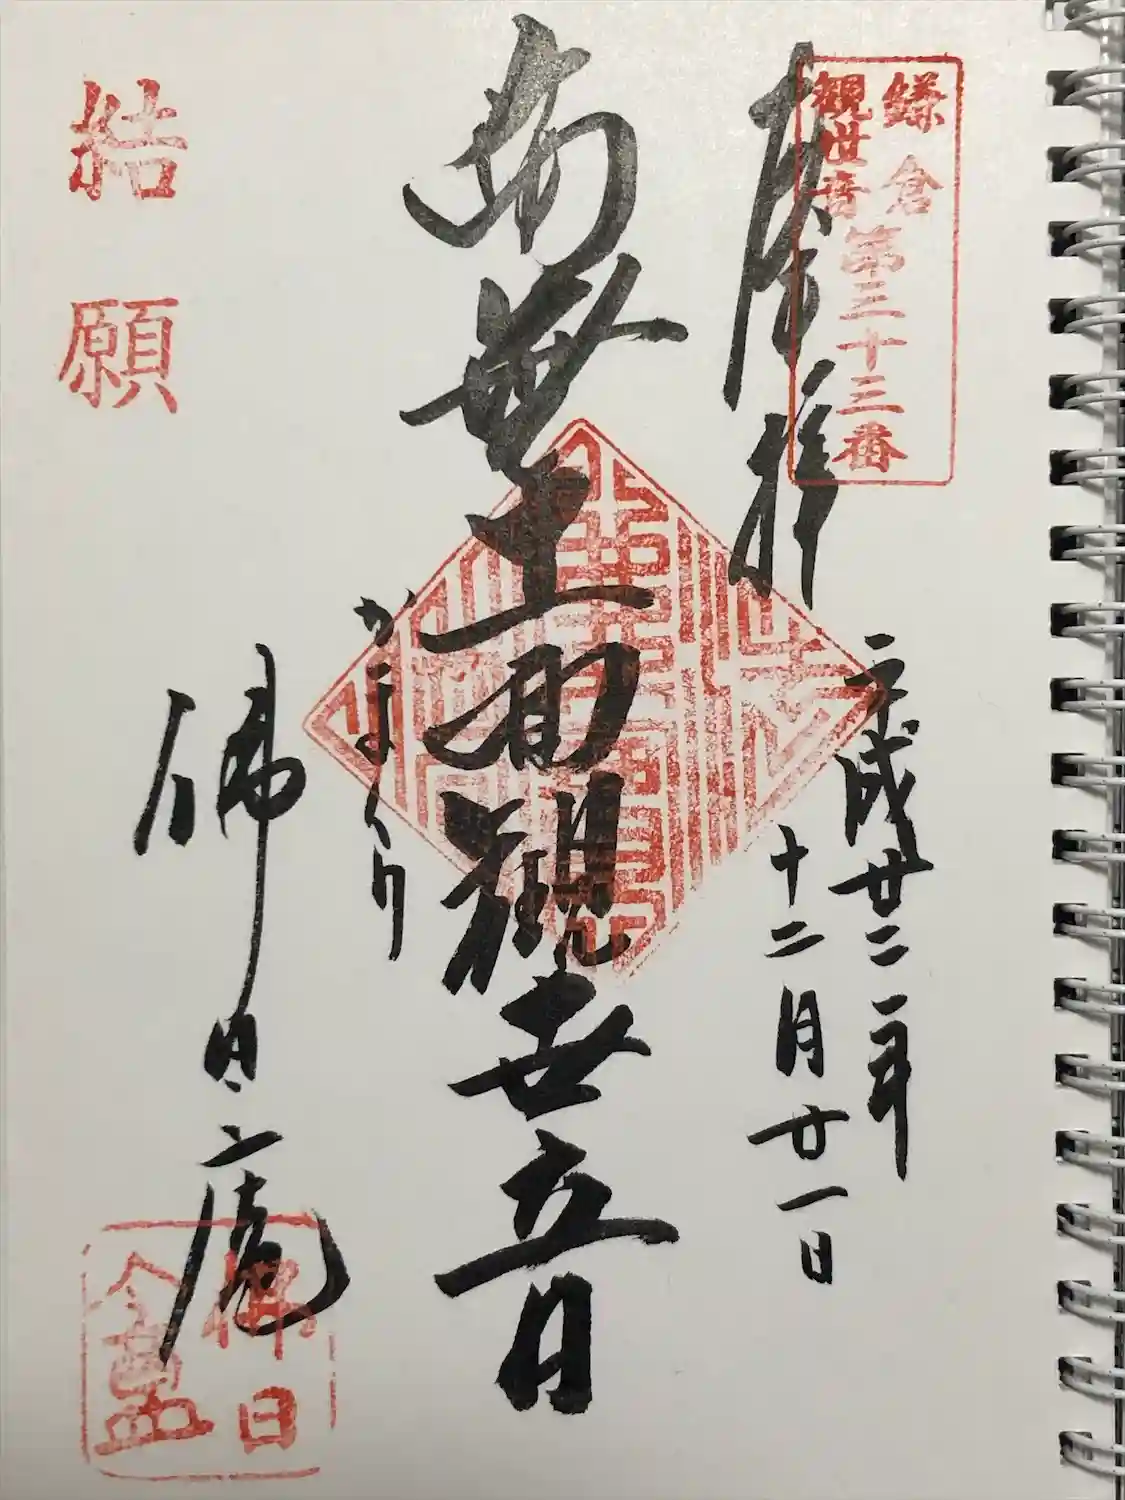 鎌倉
観世音
第三十三番
拝
平成廿二年
十二月廿一日
南無十一面観世音
かまくら
佛日庵
結願
佛日
盦